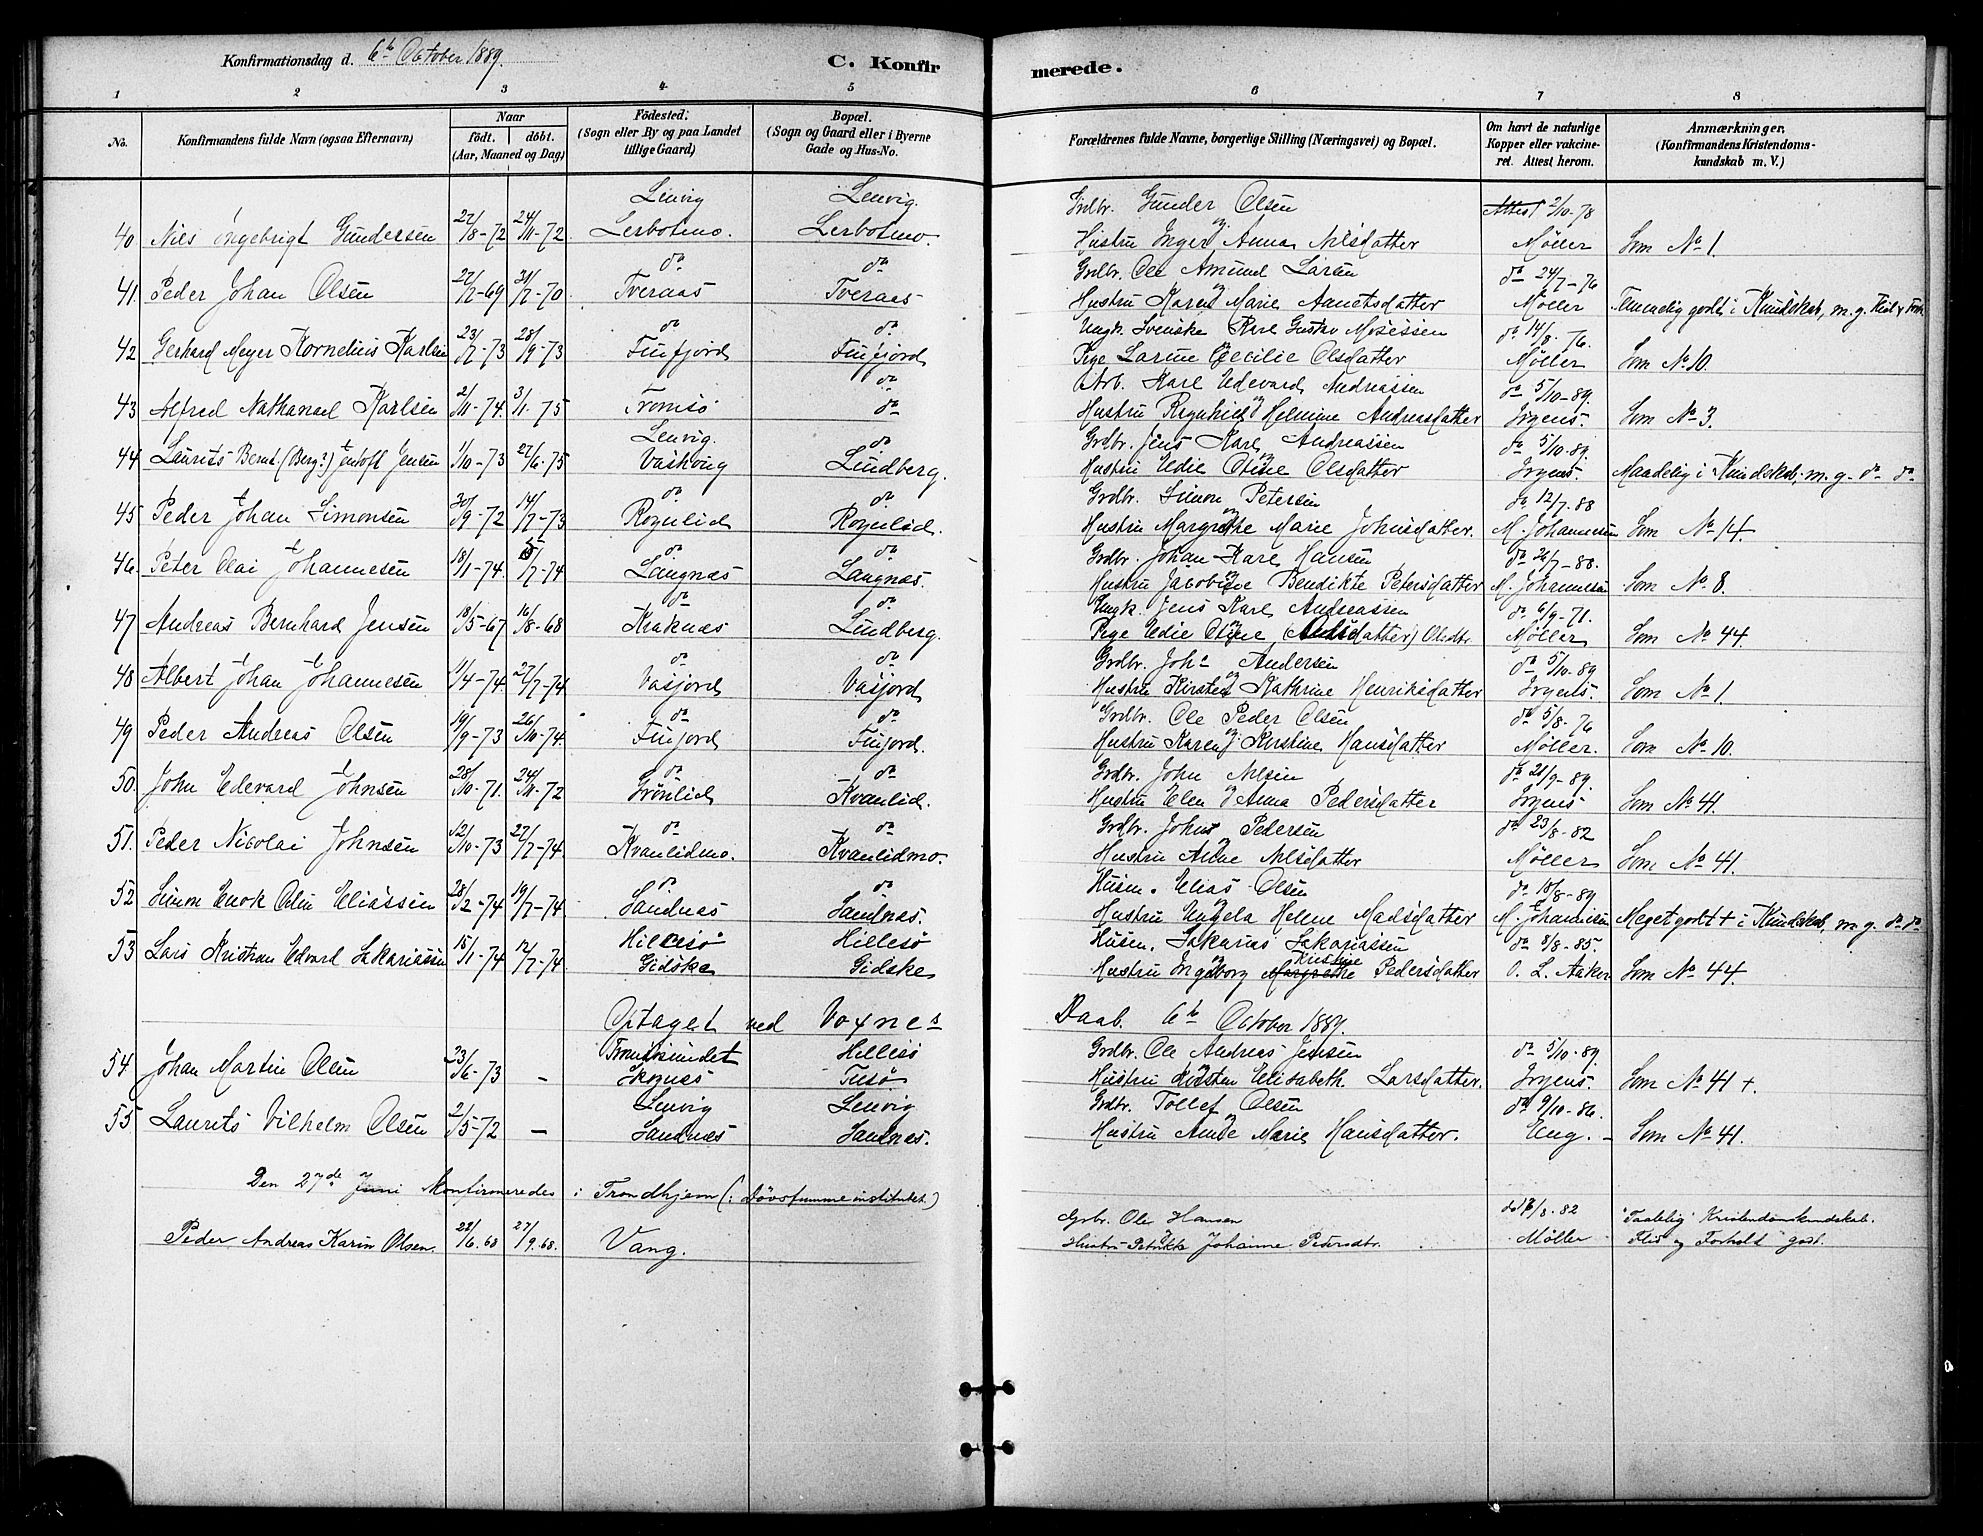 Konfirmationsdag d. 6te October 1889.
C. Konfirmerede.
1 2 3 4 5 6 7 8
No. Konfirmandens fulde Navn (ogsaa Efternavn) Naar født. døbt. (Aar, Maaned og Dag) Fødested. (Sogn eller By og paa Landet tillige Gaard) Bopæl. (Sogn og Gaard eller i Byerne Gade og Hus-No. Forældrenes fulde Navne, borgerlige Stilling (Næringsvei) og Bopæl. Om havt de naturlige Kopper eller vakcineret. Attest herom. Anmærkninger. (Konfirmandens Kristendomskundskab m. V.)
Lenvig Lenvig. Grdbr. Gunder Olsen Attest 2/10-78
40 Nils Ingebrigt Gundersen 27/8-72 24/11-72 Lerbotmo. Lerbotmo. Hustru Inger Anna Nilsdatter Møller Som No 1.
do do Grdbr. Ole Amund Larsen do 24/7-76
41. Peder Johan Olsen 27/12-69 31/7-70 Tveraas Tveraas Hustru Karen Marie Arntsdatter Møller Temmelig godt i Kundskab, m. g. Flid & Forh.
do do Ungk. Svenske Karl Gustav Mosessen do 14/8-76.
42 Gerhard Meyer Kornelius Karlsen 23/7-73 28/9-73 Finfjord Finfjord Pige Larine Cecilie Olsdatter Møller Som No 10.
do Arb. Karl Edevard Andreassen do 5/10-89.
43 Alfred Nathanael Karlsen 2/11-74. 3/1-75 Tromsö do Hustru Ragnhild Helmine Andreasdatter Irgens. Som No 3.
Lenvig. do Grdbr. Jens Karl Andreassen do 5/10-89.
44 Laurits Bernt (Berg?) Jentoft Jensen 1/10-73 27/6-75 Vaskvig Lindberg. Hustru Edie Otine Olsdatter Irgens. Maadelig i Kundskab, m. g. do do
do do Grdbr. Simon Petersen do 12/7-88
45 Peder Johan Simonsen 30/9-72 14/7-73 Rognlid Rognlid. Hustru Margrethe Marie Johnsdatter. M. Johannesen Som No 14.
do do Grdbr. Johan Karl Hansen do 26/7-88.
46. Peter Olai Johannesen 18/1-74. 5/7-74 Langnæs Langnæs. Hustru Jacobine Bendikte Petersdatter M. Johannesen Som No 8.
do do Ungk. Jens Karl Andreassen do 6/9-71.
47 Andreas Bernhard Jensen 18/5-67 16/8-68 Kraknæs Lindberg. Pige Edie Otine Olsdtr. Møller Som No 44.
do do Grdbr. Johs Andersen do 5/10-89
48 Albert Johan Johannesen 11/4-74 27/7-74 Vasjord Vasjord Hustru Kirsten Kathrine Henriksdatter Irgens. Som No 1.
do do Grdbr. Ole Peder Olsen do 5/8-76
49 Peder Andreas Olsen 19/9-73 26/10-74. Finjord Finjord. Hustru Karen Kristine Hansdatter Møller. Som No 10.
do do Grdbr. John Nilsen do 21/9-89.
50. John Edevard Johnsen 28/10-71. 24/11-72 Grönlid Kvanlid. Hustru Elen Anna Pedersdatter Irgens Som No 41.
do do Grdbr. John Pedersen do 23/8-82
51. Peder Nicolai Johnsen 12/10-73 27/7-74. Kvanlidmo. Kvanlidmo. Hustru Anne Nilsdatter Møller Som No 41.
do do Husm. Elias Olsen do 18/8-89
52 Simon Enok Odin Eliassen 28/2-74 19/7-74 Sandnæs Sandnæs. Hustru Engela Helene Madsdatter M. Johannesen Meget godt + i Kundskab, m. g. do do
Hillesö Hillesö Husm. Sakarias Sakariassen do 8/8-85.
53 Lars Kristian Edvard Sakariassen 15/1-74 12/7-74 Gidske Gidske Hustru Ingeborg Margrethe Kristine Pedersdatter O. L. Aaker Som No 44.
Optaget ved Voxnes Daab. 6te October 1889.
Tranösundet Hillesö Grdbr. Ole Andreas Jensen do 5/10-89.
54 Johan Martin Olsen 23/6-73 — Skognæs Tusö Hustru Kirsten Elisabeth Larsdatter. Irgens. Som No 41 +.
Lenvig Lenvig Grdbr. Tollef Olsen do 9/10-86.
55. Laurits Vilhelm Olsen 2/5-72 — Sandnæs Sandnæs. Hustru Anne Marie Hansdatter. Eng. — Som No 41.
Den 27de Juni Konfirmeredes i Trondhjem (: Døvstummeinstitutet)
Gbr. Ole Hansen /8-82 "Taalelig" Kristendomskundskab.
Peder Andreas Karin Olsen. 22/6.68 27/9.68. Vang. Hustru Petrikke Johanne Pedersdtr. Møller Flid og Forhold "godt.